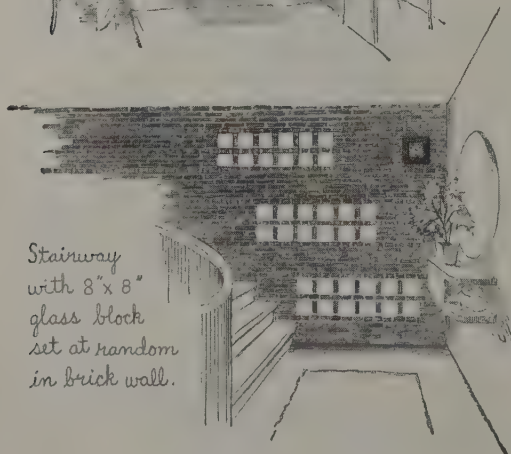 Stairway
with 8"x 8"
glass block
set at random
in brick wall.